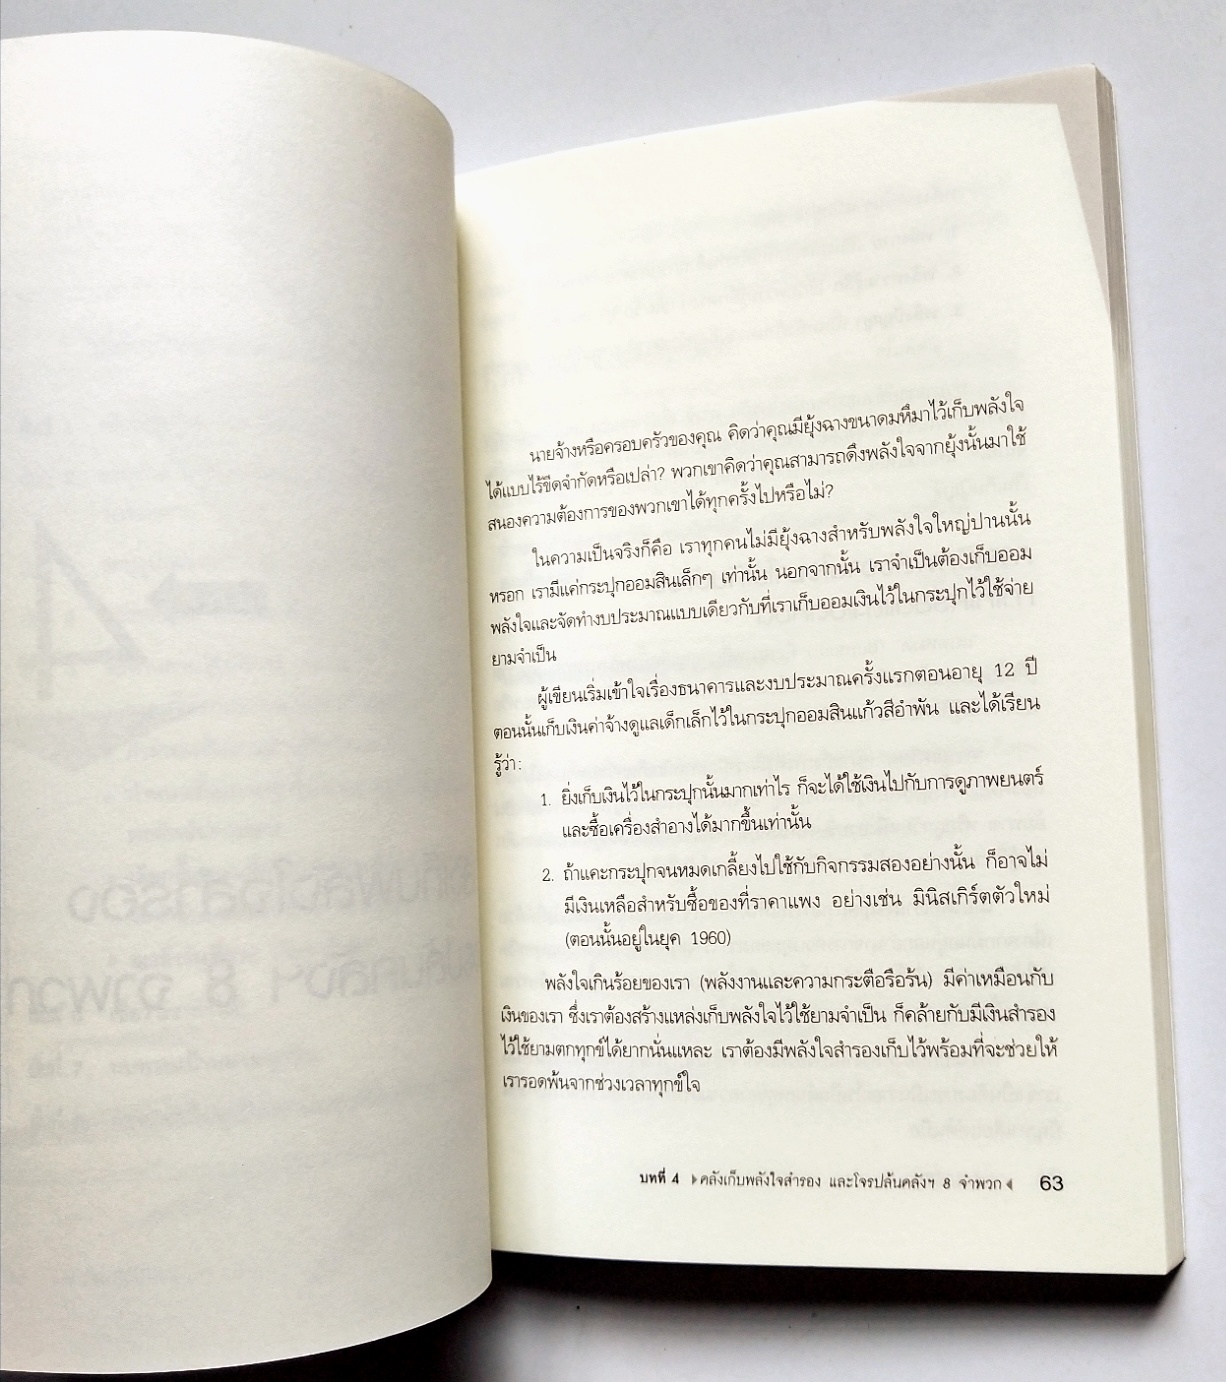 นายจ้างหรือครอบครัวของคุณ คิดว่าคุณมียุ้งฉางขนาดมหึมาไว้เก็บพลังใจ
ได้แบบไร้ขีดจำกัดหรือเปล่า? พวกเขาคิดว่าคุณสามารถดึงพลังใจจากยุ้งนั้นมาใช้
สนองความต้องการของพวกเขาได้ทุกครั้งไปหรือไม่?
ในความเป็นจริงก็คือ เราทุกคนไม่มียุ้งฉางสำหรับพลังใจใหญ่ปานนั้น
หรอก เรามีแค่กระปุกออมสินเล็กๆ เท่านั้น นอกจากนั้น เราจำเป็นต้องเก็บออม
พลังใจและจัดทำงบประมาณแบบเดียวกับที่เราเก็บออมเงินไว้ในกระปุกไว้ใช้จ่าย
ยามจำเป็น
ผู้เขียนเริ่มเข้าใจเรื่องธนาคารและงบประมาณครั้งแรกตอนอายุ 12 ปี
ตอนนั้นเก็บเงินค่าจ้างดูแลเด็กเล็กไว้ในกระปุกออมสินแก้วสีอำพัน และได้เรียน
รู้ว่า:
1. ยิ่งเก็บเงินไว้ในกระปุกนั้นมากเท่าไร ก็จะได้ใช้เงินไปกับการดูภาพยนตร์
และซื้อเครื่องสำอางได้มากขึ้นเท่านั้น
2. ถ้าแคะกระปุกจนหมดเกลี้ยงไปใช้กับกิจกรรมสองอย่างนั้น ก็อาจไม่
มีเงินเหลือสำหรับซื้อของที่ราคาแพง อย่างเช่น มินิสเกิร์ตตัวใหม่
(ตอนนั้นอยู่ในยุค 1960)
พลังใจเกินร้อยของเรา (พลังงานและความกระตือรือร้น) มีค่าเหมือนกับ
เงินของเรา ซึ่งเราต้องสร้างแหล่งเก็บพลังใจไว้ใช้ยามจำเป็น ก็คล้ายกับมีเงินสำรอง
ไว้ใช้ยามตกทุกข์ได้ยากนั่นแหละ เราต้องมีพลังใจสำรองเก็บไว้พร้อมที่จะช่วยให้
เรารอดพ้นจากช่วงเวลาทุกข์ใจ
บทที่ 4 คลังเก็บพลังใจสำรอง และโจรปล้นคลังฯ 8 จำพวก 63